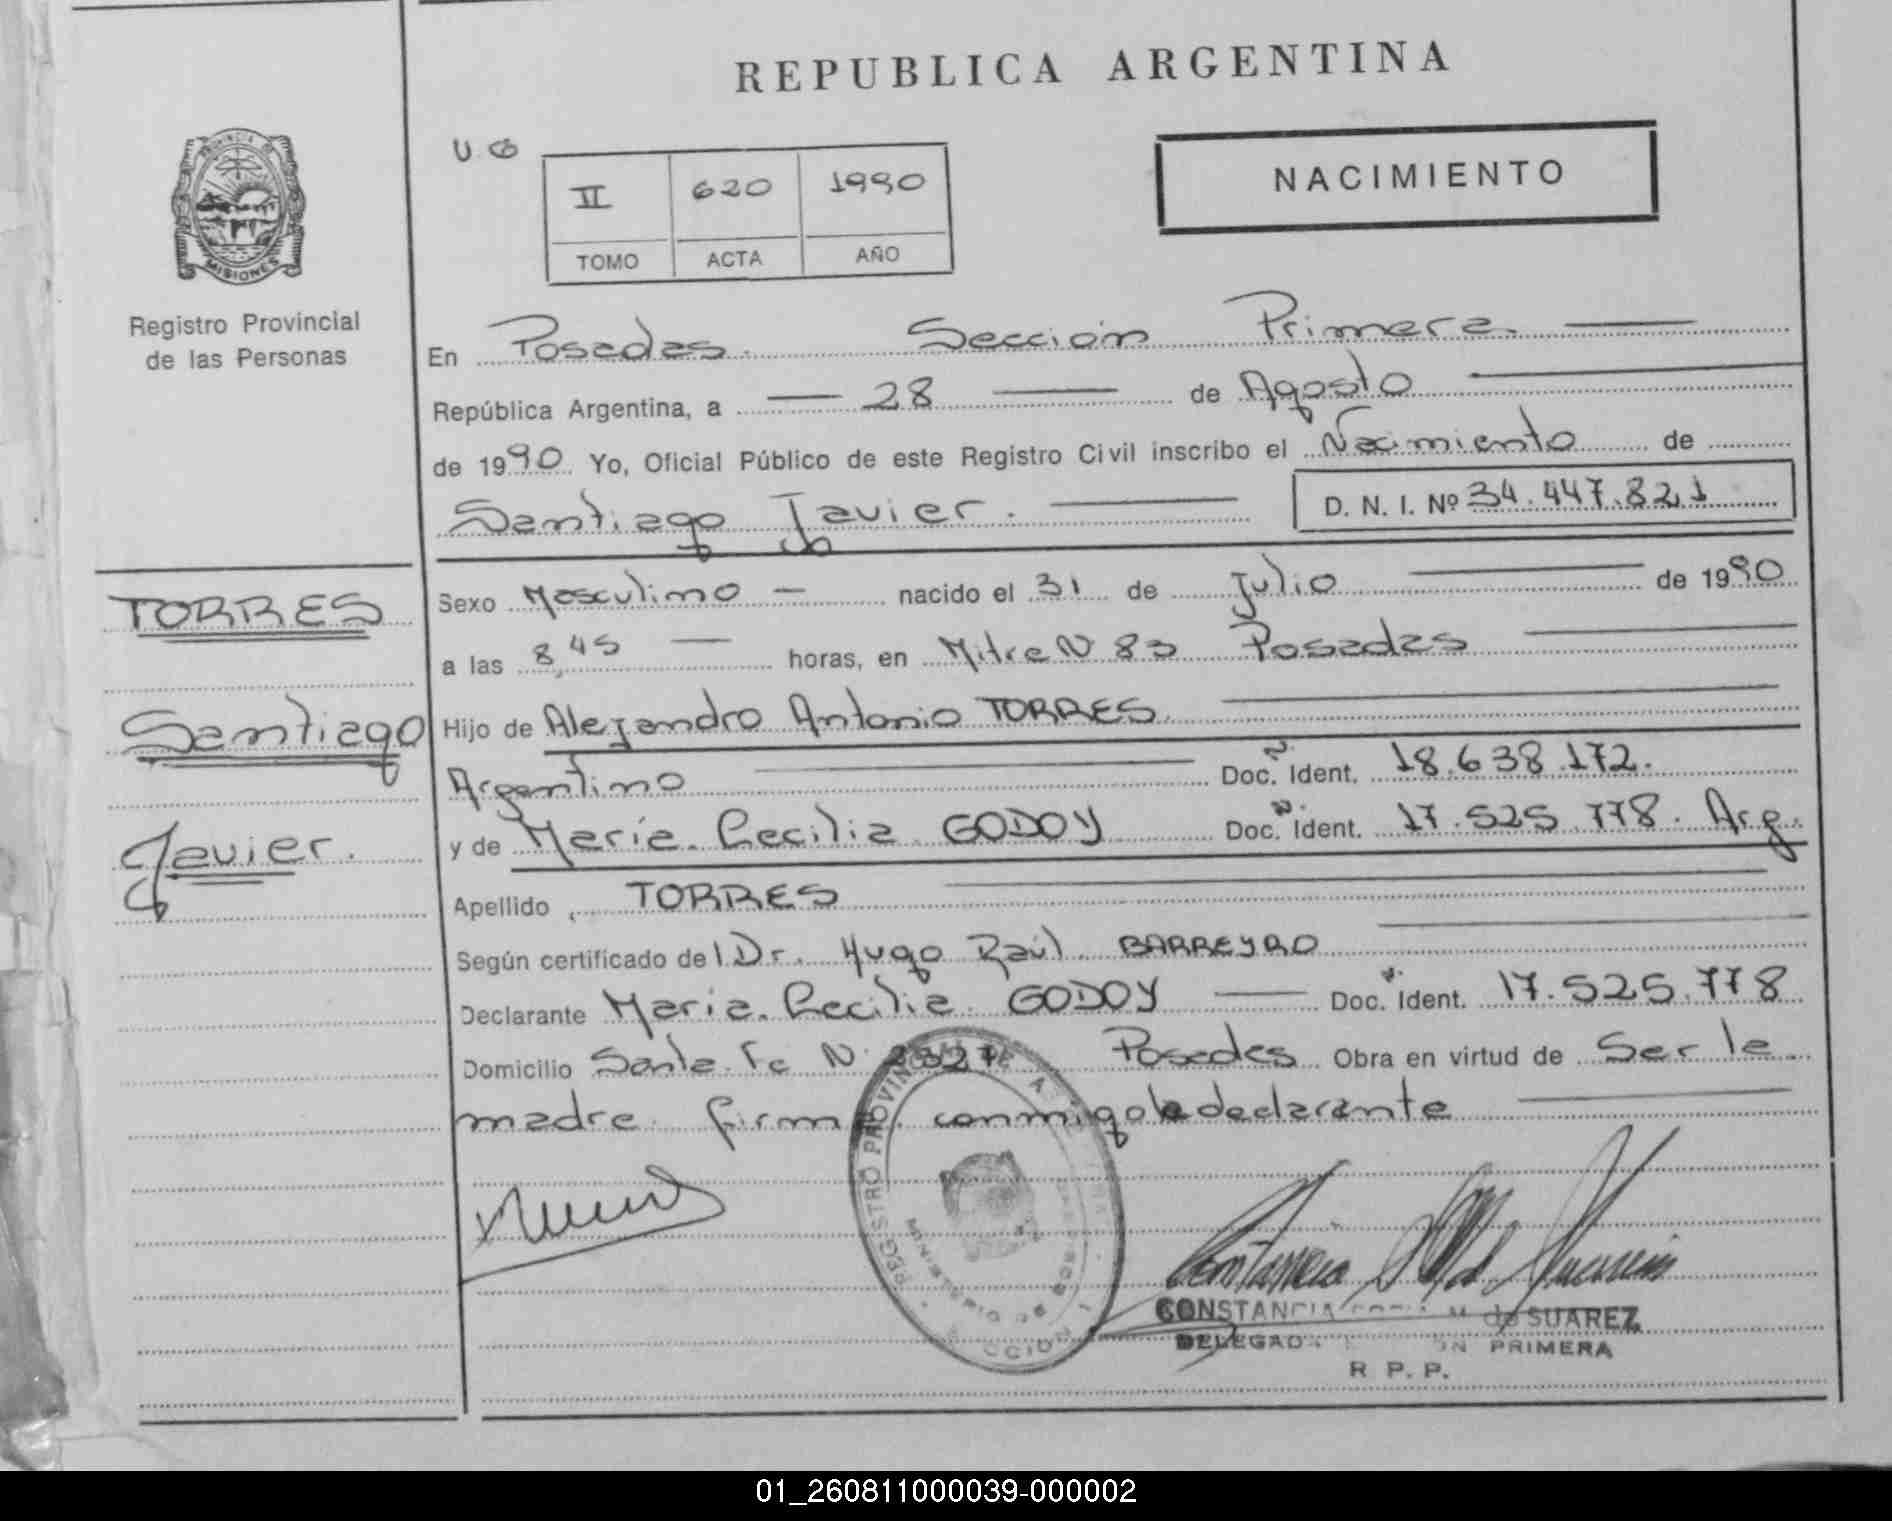 REPUBLICA ARGENTINA
PROVINCIA DE
MISIONES
Registro Provincial
de las Personas
U.G
II 620 1990
TOMO ACTA AÑO
NACIMIENTO
En Posadas. Sección Primera.
República Argentina, a 28 de Agosto
de 1990 Yo, Oficial Público de este Registro Civil inscribo el Nacimiento de
Santiago Javier. D. N. I. Nº 34.447.821
TORRES
Santiago
Javier.
Sexo Masculino nacido el 31 de Julio de 1990
a las 8,45 horas, en Mitre N 83 Posadas
Hijo de Alejandro Antonio TORRES
Argentino Doc. Ident. 18.638.172.
y de Maria Cecilia GODOY Doc. Ident. 17.525.778. Arg.
Apellido TORRES
Según certificado del Dr. Hugo Raúl BARREYRO
Declarante Maria Cecilia GODOY Doc. Ident. 17.525.778
Domicilio Santa Fe N Posadas Obra en virtud de Ser la
madre firma conmigo la declarante
REGISTRO PROVINCIAL DE
MINISTERIO DE
CONSTANCIA M. de SUAREZ
DELEGADA PRIMERA
R P.P.
01_260811000039-000002